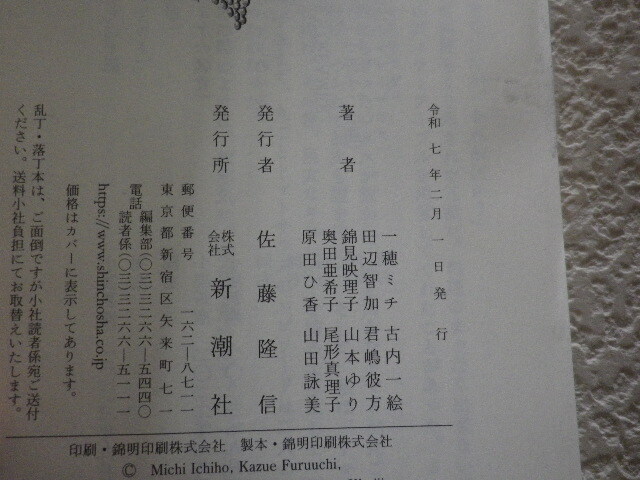 令和七年二月一日発行
著者
一穂ミチ 古内一絵
田辺智加 君嶋彼方
錦見映理子 山本ゆり
奥田亜希子 尾形真理子
原田ひ香 山田詠美
発行者 佐藤隆信
発行所 株式会社 新潮社
郵便番号 一六二―八七一一
東京都新宿区矢来町七一
電話 編集部(〇三)三二六六―五四四〇
読者係(〇三)三二六六―五一一一
https://www.shinchosha.co.jp
価格はカバーに表示してあります。
乱丁・落丁本は、ご面倒ですが小社読者係宛ご送付
ください。送料小社負担にてお取替えいたします。
印刷・錦明印刷株式会社 製本・錦明印刷株式会社
© Michi Ichiho, Kazue Furuuchi,